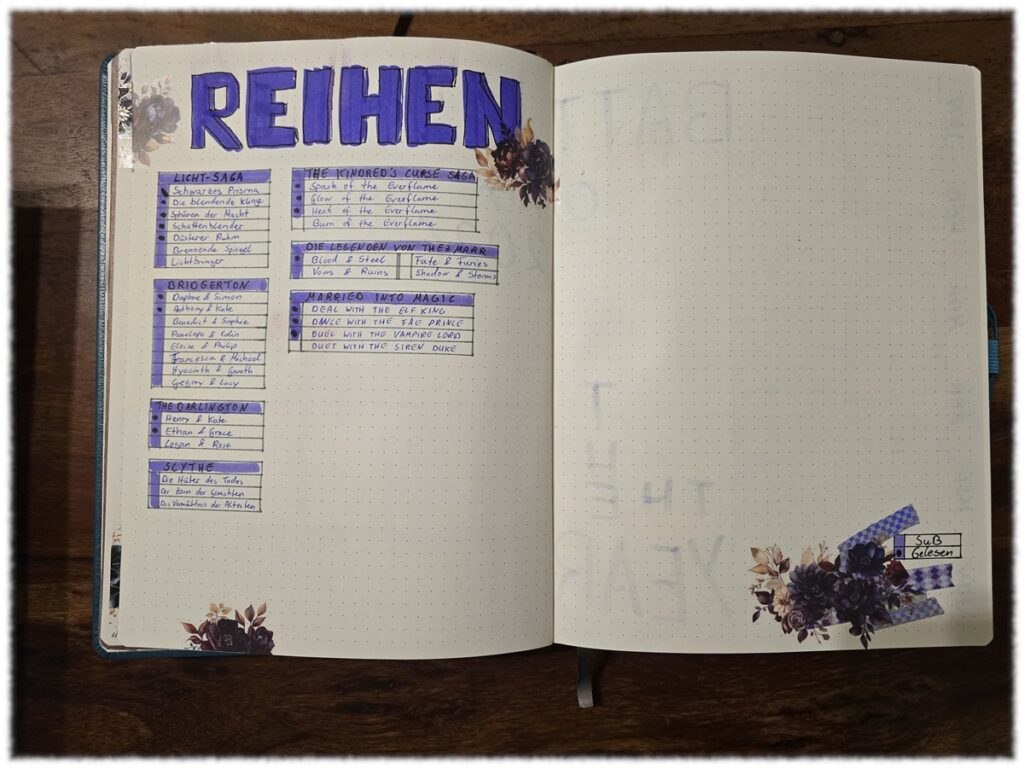 REIHEN
LICHT-SAGA
Schwarzes Prisma
Die blendende Klinge
Sphären der Macht
Schattenblender
Düsterer Ruhm
Brennende Spiegel
Lichtbringer
BRIDGERTON
Daphne & Simon
Anthony & Kate
Benedict & Sophie
Penelope & Colin
Eloise & Philip
Francesca & Michael
Hyacinth & Gareth
Gregory & Lucy
THE DARLINGTON
Henry & Kate
Ethan & Grace
Logan & Rose
SCYTHE
Die Hüter des Todes
Der Zorn der Gerechten
Das Vermächtnis der Ältesten
THE KINDRED'S CURSE SAGA
Spark of the Everflame
Glow of the Everflame
Heat of the Everflame
Burn of the Everflame
DIE LEGENDEN VON THEZMARR
Blood & Steel Fate & Furies
Vows & Ruins Shadow & Storms
MARRIED INTO MAGIC
DEAL WITH THE ELF KING
DANCE WITH THE FAE PRINCE
DUEL WITH THE VAMPIRE LORD
DUET WITH THE SIREN DUKE
SuB
Gelesen